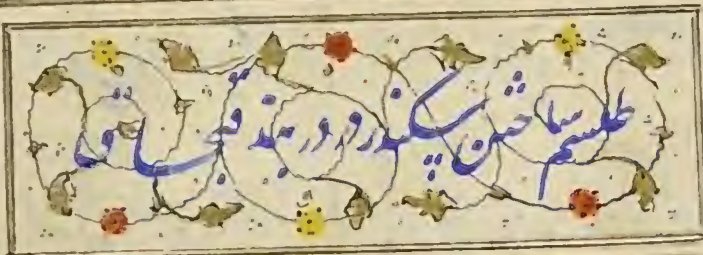 طلسم ساختن سکندر در بند قبچاق